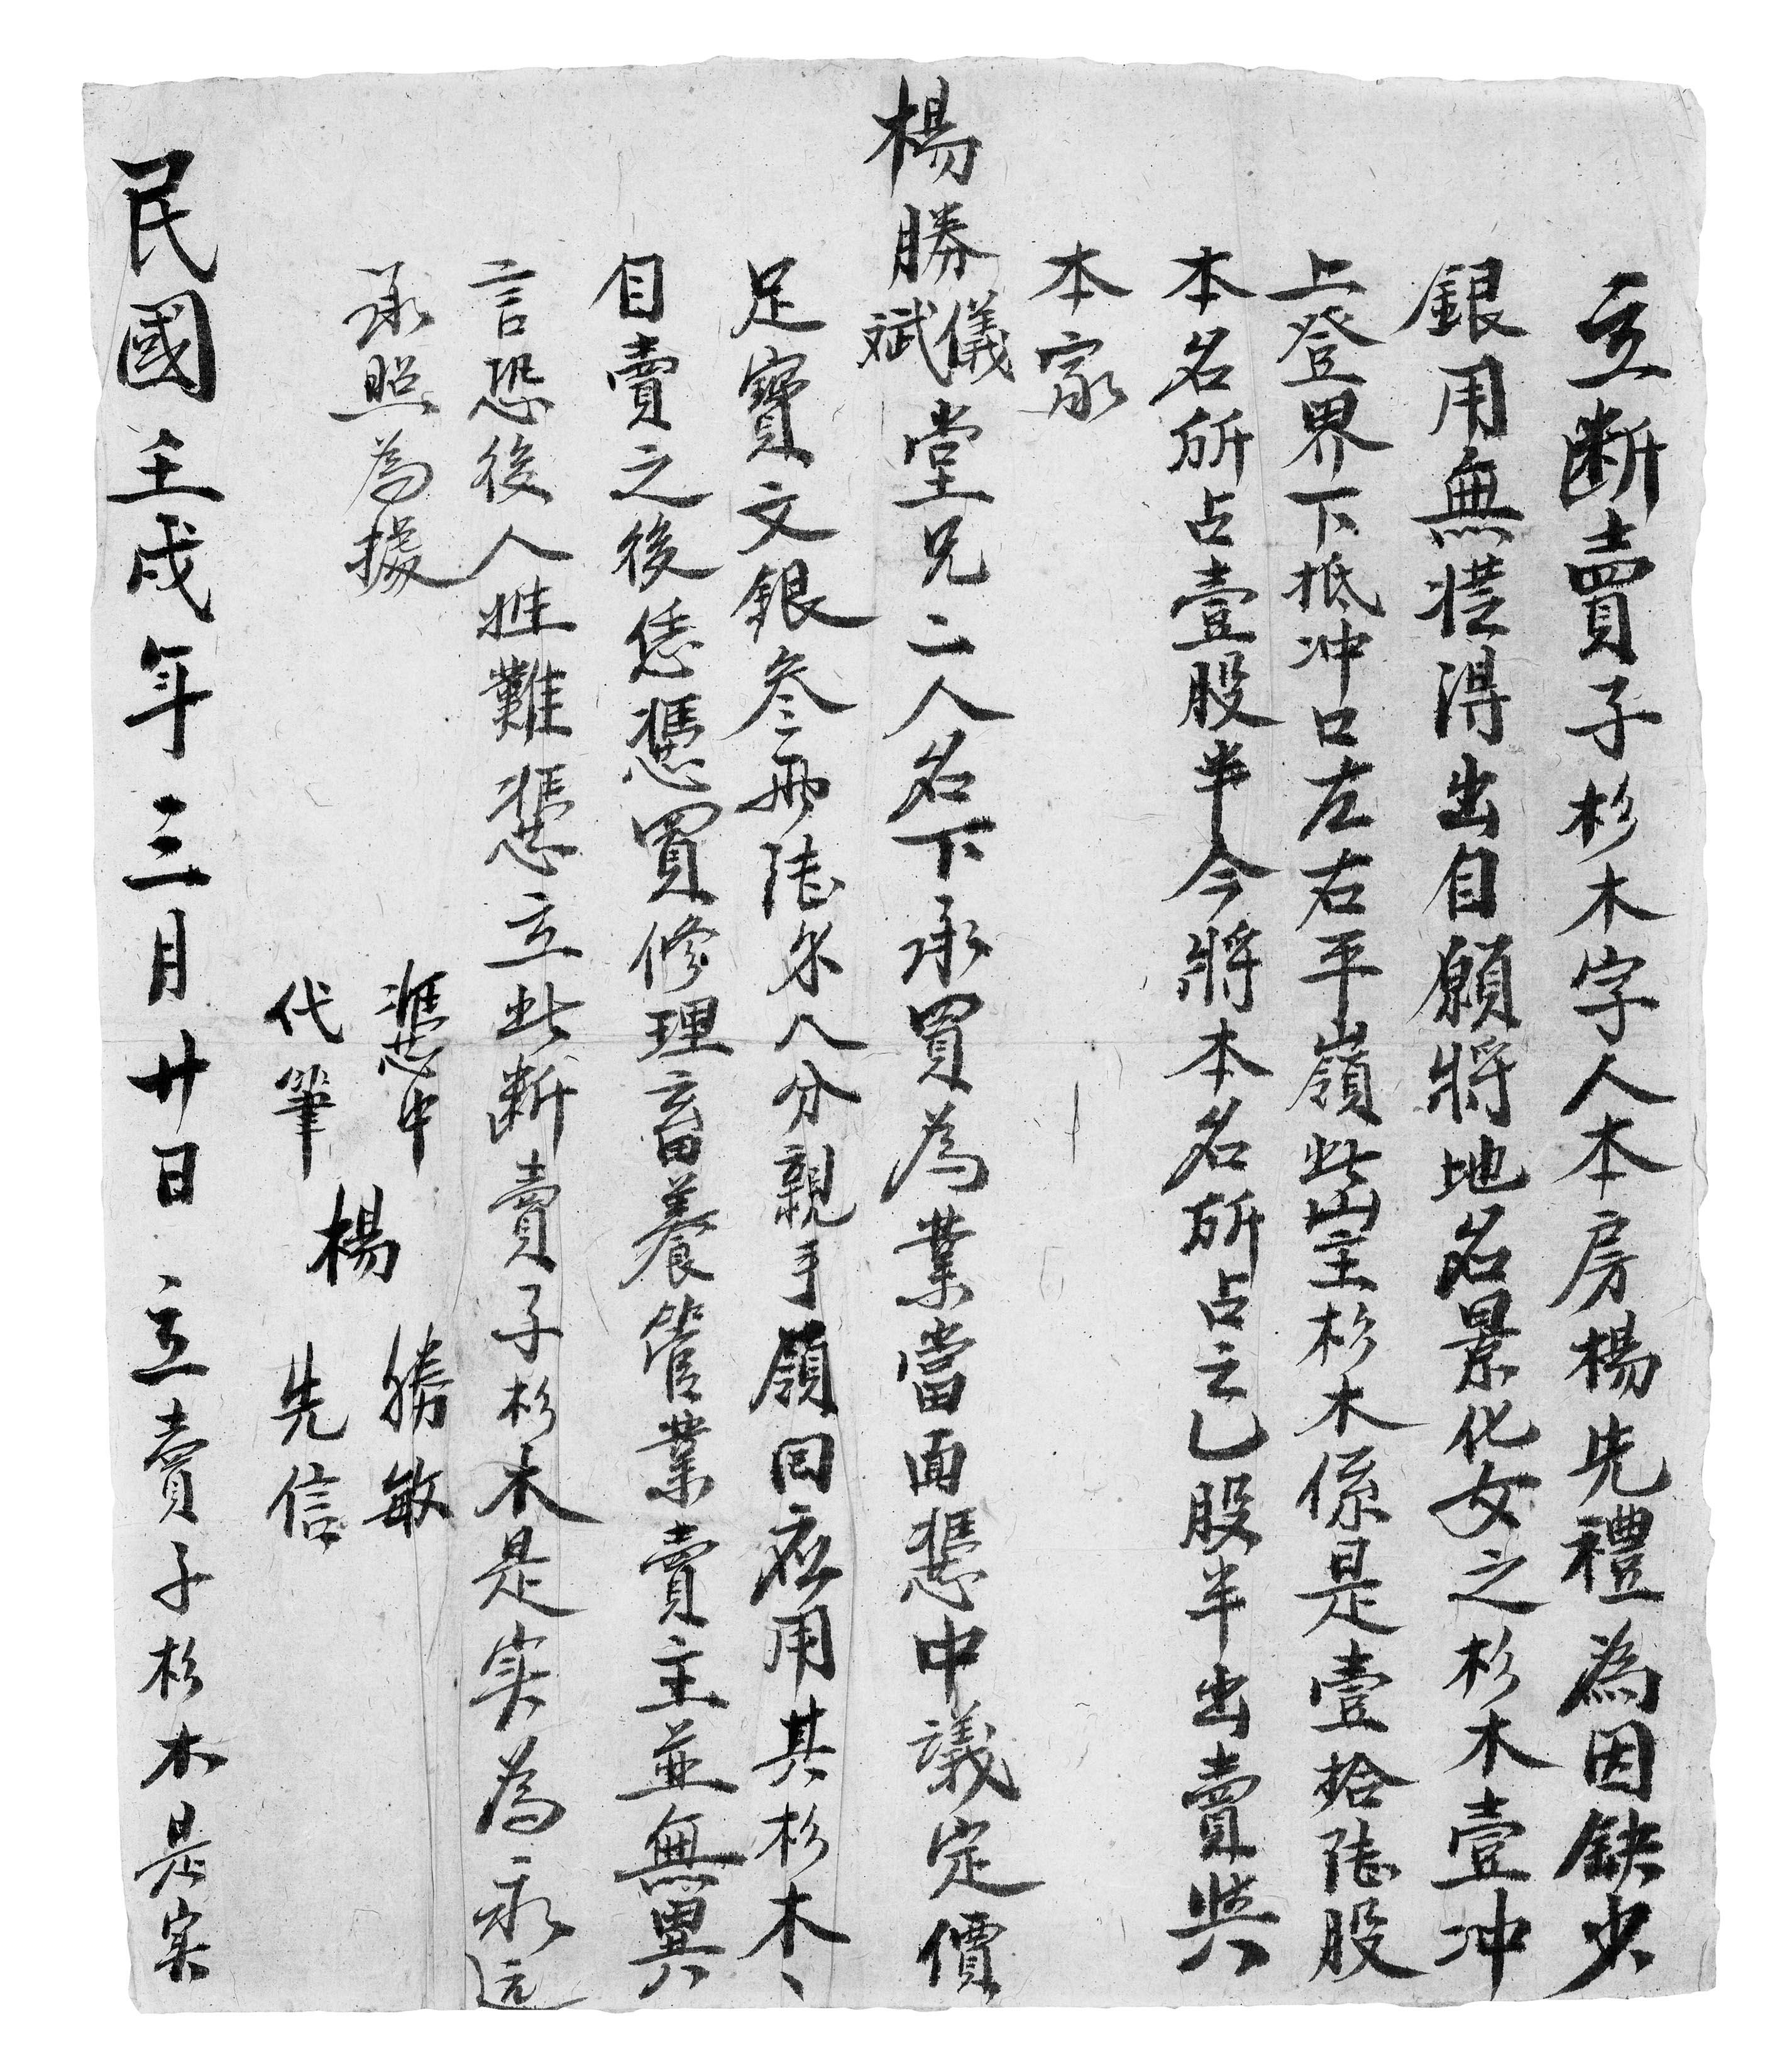 立断賣子杉木字人本房楊先禮為因缺少
銀用無從得出自願將地名景化女之杉木壹冲
上登界下抵冲口左右平嶺此山杉木係是壹拾陸股
本名所占壹股半今將本名所占之乙股半出賣與
本家
楊勝儀斌堂兄二人名下承買為業當面憑中議定價
足寶文銀叁两陸錢八分親手領回應用其杉木
自賣之後恁憑買修理畜養管業賣主並無異
言恐後人心難憑立此断賣子杉木是实為永远
承照為據
憑中 楊 勝敏
代筆 先信
民國壬戌年三月廿日 立賣子杉木是实